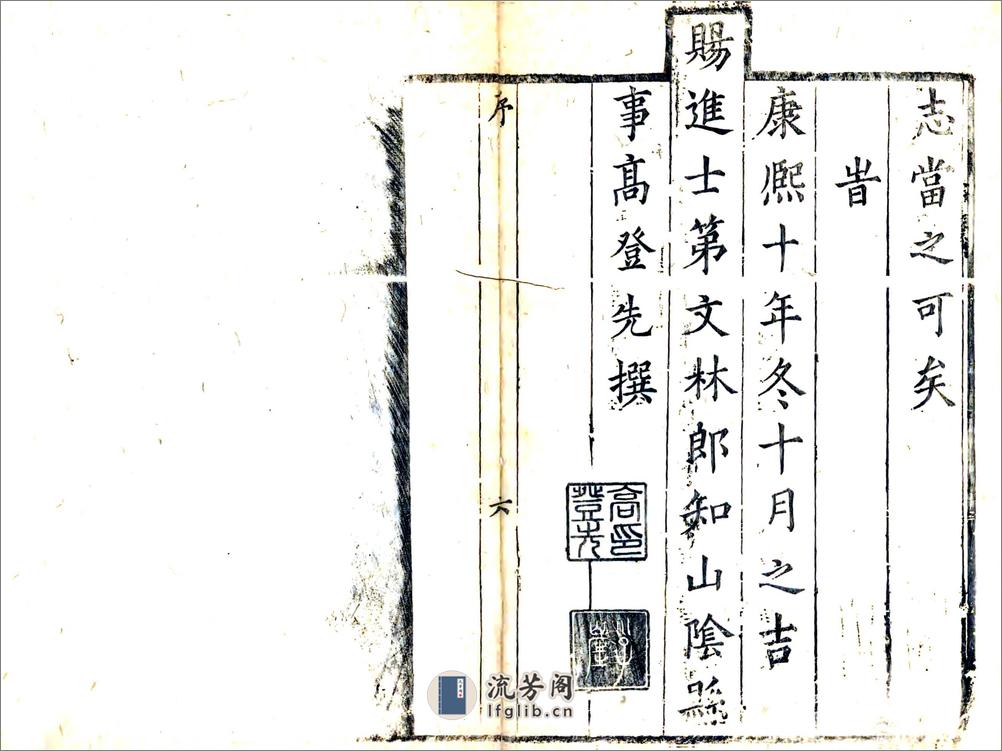 志當之可矣
旹
康熈十年冬十月之吉
賜進士第文林郎知山陰縣
事高登先撰
高印登先
序
六
流芳阁
lfglib.cn